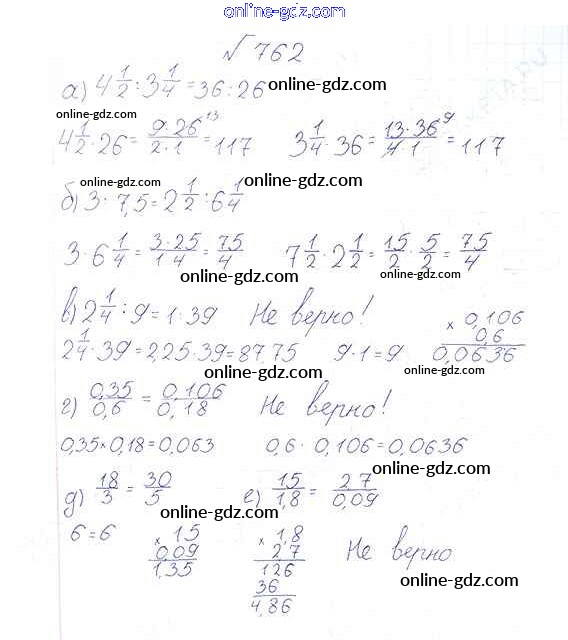 online-gdz.com
№762
а) 4 1/2 : 3 1/4 = 36 : 26 online-gdz.com
online-gdz.com
4 1/2 · 26 = 9·26¹³/2·1 = 117 3 1/4 · 36 = 13·36⁹/4·1 = 117
online-gdz.com online-gdz.com
б) 3 · 7,5 = 2 1/2 : 6 1/4
3 · 6 1/4 = 3·25/1 4 = 75/4 7 1/2 · 2 1/2 = 15/2 · 5/2 = 75/4
online-gdz.com online-gdz.com
в) 2 1/4 : 9 = 1 · 39 Не верно!
2 1/4 · 39 = 2,25 · 39 = 87,75 9 · 1 = 9
× 0,106
0,6
0,0636
online-gdz.com online-gdz.com
г) 0,35/0,6 = 0,106/0,18 Не верно!
0,35 × 0,18 = 0,063 0,6 · 0,106 = 0,0636
online-gdz.com
д) 18/3 = 30/5 е) 15/1,8 = 27/0,09
online-gdz.com
6 = 6
× 15
0,09
1,35
× 1,8
2,7
126
36
4,86
Не верно
online-gdz.com
online-gdz.com